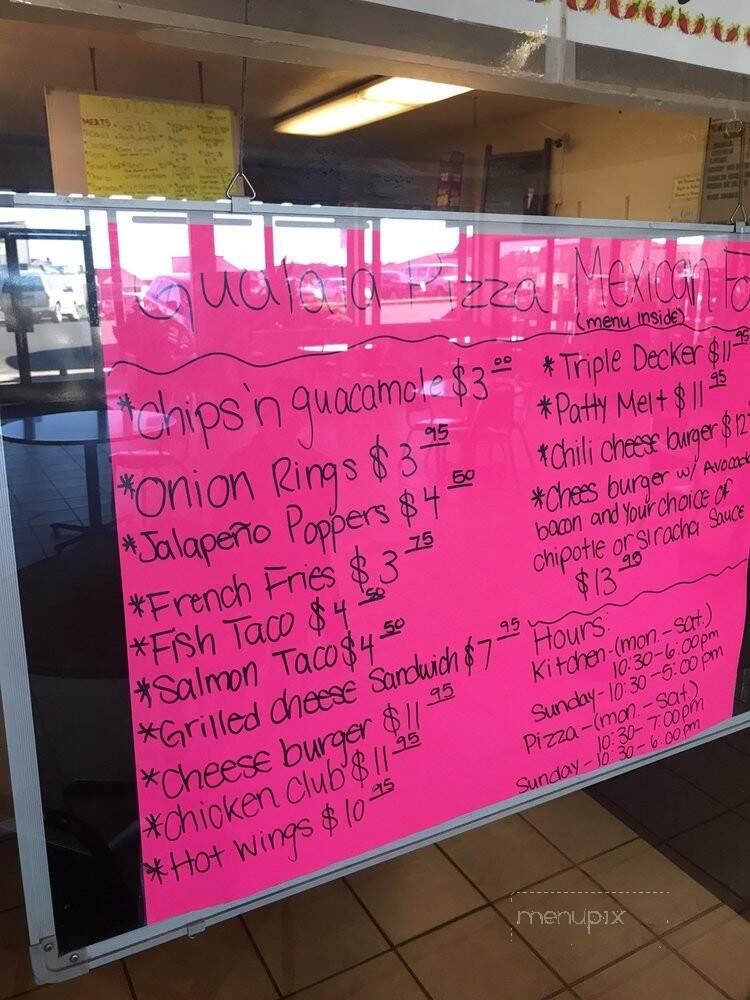 Gualala Pizza Mexican Fo
(menu inside)
*Chips'n guacamole $3.00
*Onion Rings $3.95
*Jalapeño Poppers $4.50
*French Fries $3.75
*Fish Taco $4.50
*Salmon Taco $4.50
*Grilled cheese Sandwich $7.95
*Cheese burger $11.95
*Chicken Club $11.95
*Hot wings $10.95
*Triple Decker $11.95
*Patty Melt $11.95
*Chili cheese burger $12
*Chees burger w/ Avocado
bacon and your choice of
chipotle or siracha sauce
$13.95
Hours:
Kitchen-(mon.-sat.)
10:30-6:00pm
Sunday-10:30-5:00pm
Pizza-(mon.-sat.)
10:30-7:00pm
Sunday-10:30-6:00pm
MEATS
menupix